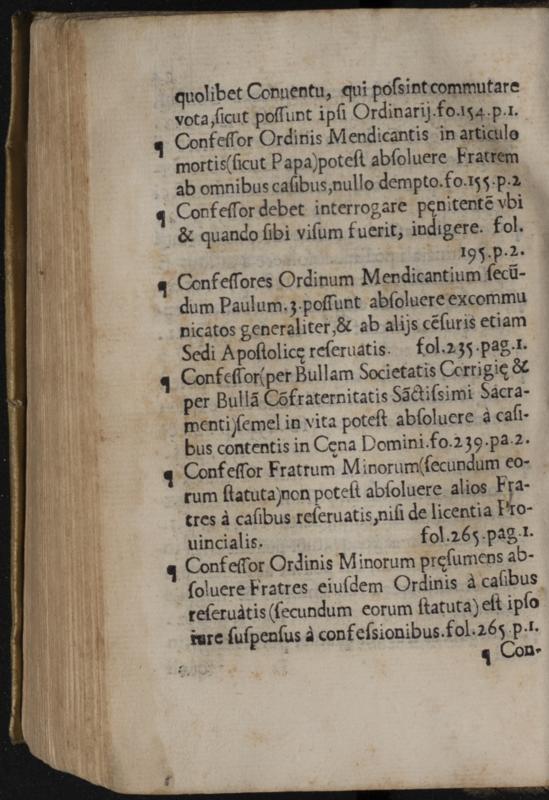 quolibet Conuentu, qui poſsint commutare
vota,ſicut poſſunt ipſi Ordinarij.fo.154.p.1.
¶ Confeſſor Ordinis Mendicantis in articulo
mortis(ſicut Papa)poteſt abſoluere Fratrem
ab omnibus caſibus,nullo dempto.fo.155.p.2
¶ Confeſſor debet interrogare pęnitentē vbi
& quando ſibi viſum fuerit, indigere. fol.
195.p.2.
¶ Confeſſores Ordinum Mendicantium ſecū-
dum Paulum.3.poſſunt abſoluere excommu
nicatos generaliter,& ab alijs cēſuris etiam
Sedi Apoſtolicę reſeruatis. fol.235.pag.1.
¶ Confeſſor(per Bullam Societatis Corrigię &
per Bullā Cōfraternitatis Sāctiſsimi Sacra-
menti)ſemel in vita poteſt abſoluere à caſi-
bus contentis in Cęna Domini.fo.239.pa.2.
¶ Confeſſor Fratrum Minorum(ſecundum eo-
rum ſtatuta)non poteſt abſoluere alios Fra-
tres à caſibus reſeruatis,niſi de licentia Pro-
uincialis. fol.265.pag.1.
¶ Confeſſor Ordinis Minorum pręſumens ab-
ſoluere Fratres eiuſdem Ordinis à caſibus
reſeruàtis(ſecundum eorum ſtatuta)eſt ipſo
iure ſuſpenſus à confeſsionibus.fol.265.p.1.
¶ Con-